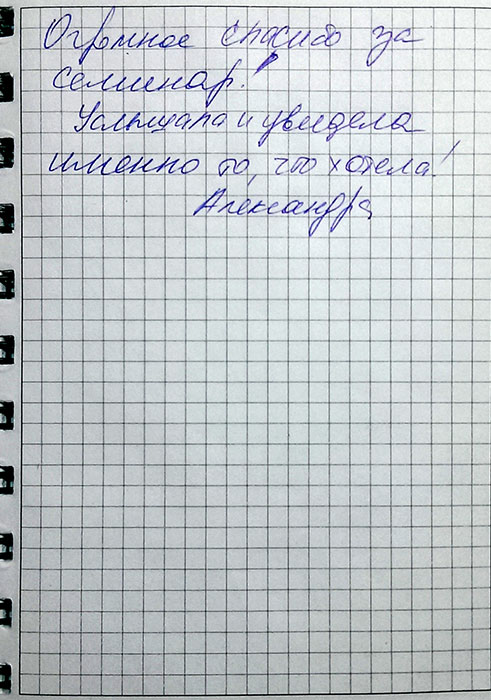 Огромное спасибо за
семинар!
Услышала и увидела
именно то, что хотела!
Александра